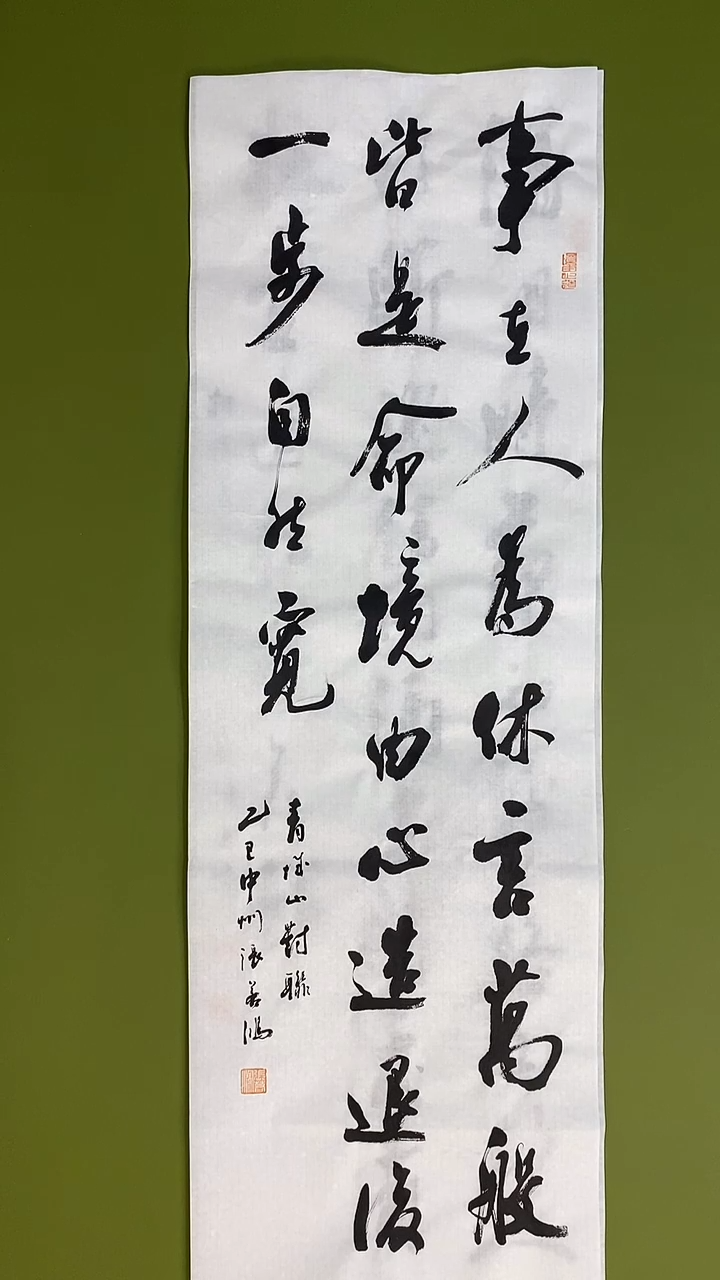 事在人為休言萬般
皆是命境由心造退後
一步自然寬
青城山對聯
乙巳中州張善鴻